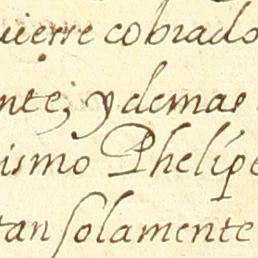 uierre cobrado
nte; y demas
ismo Phelipe
tan solamente